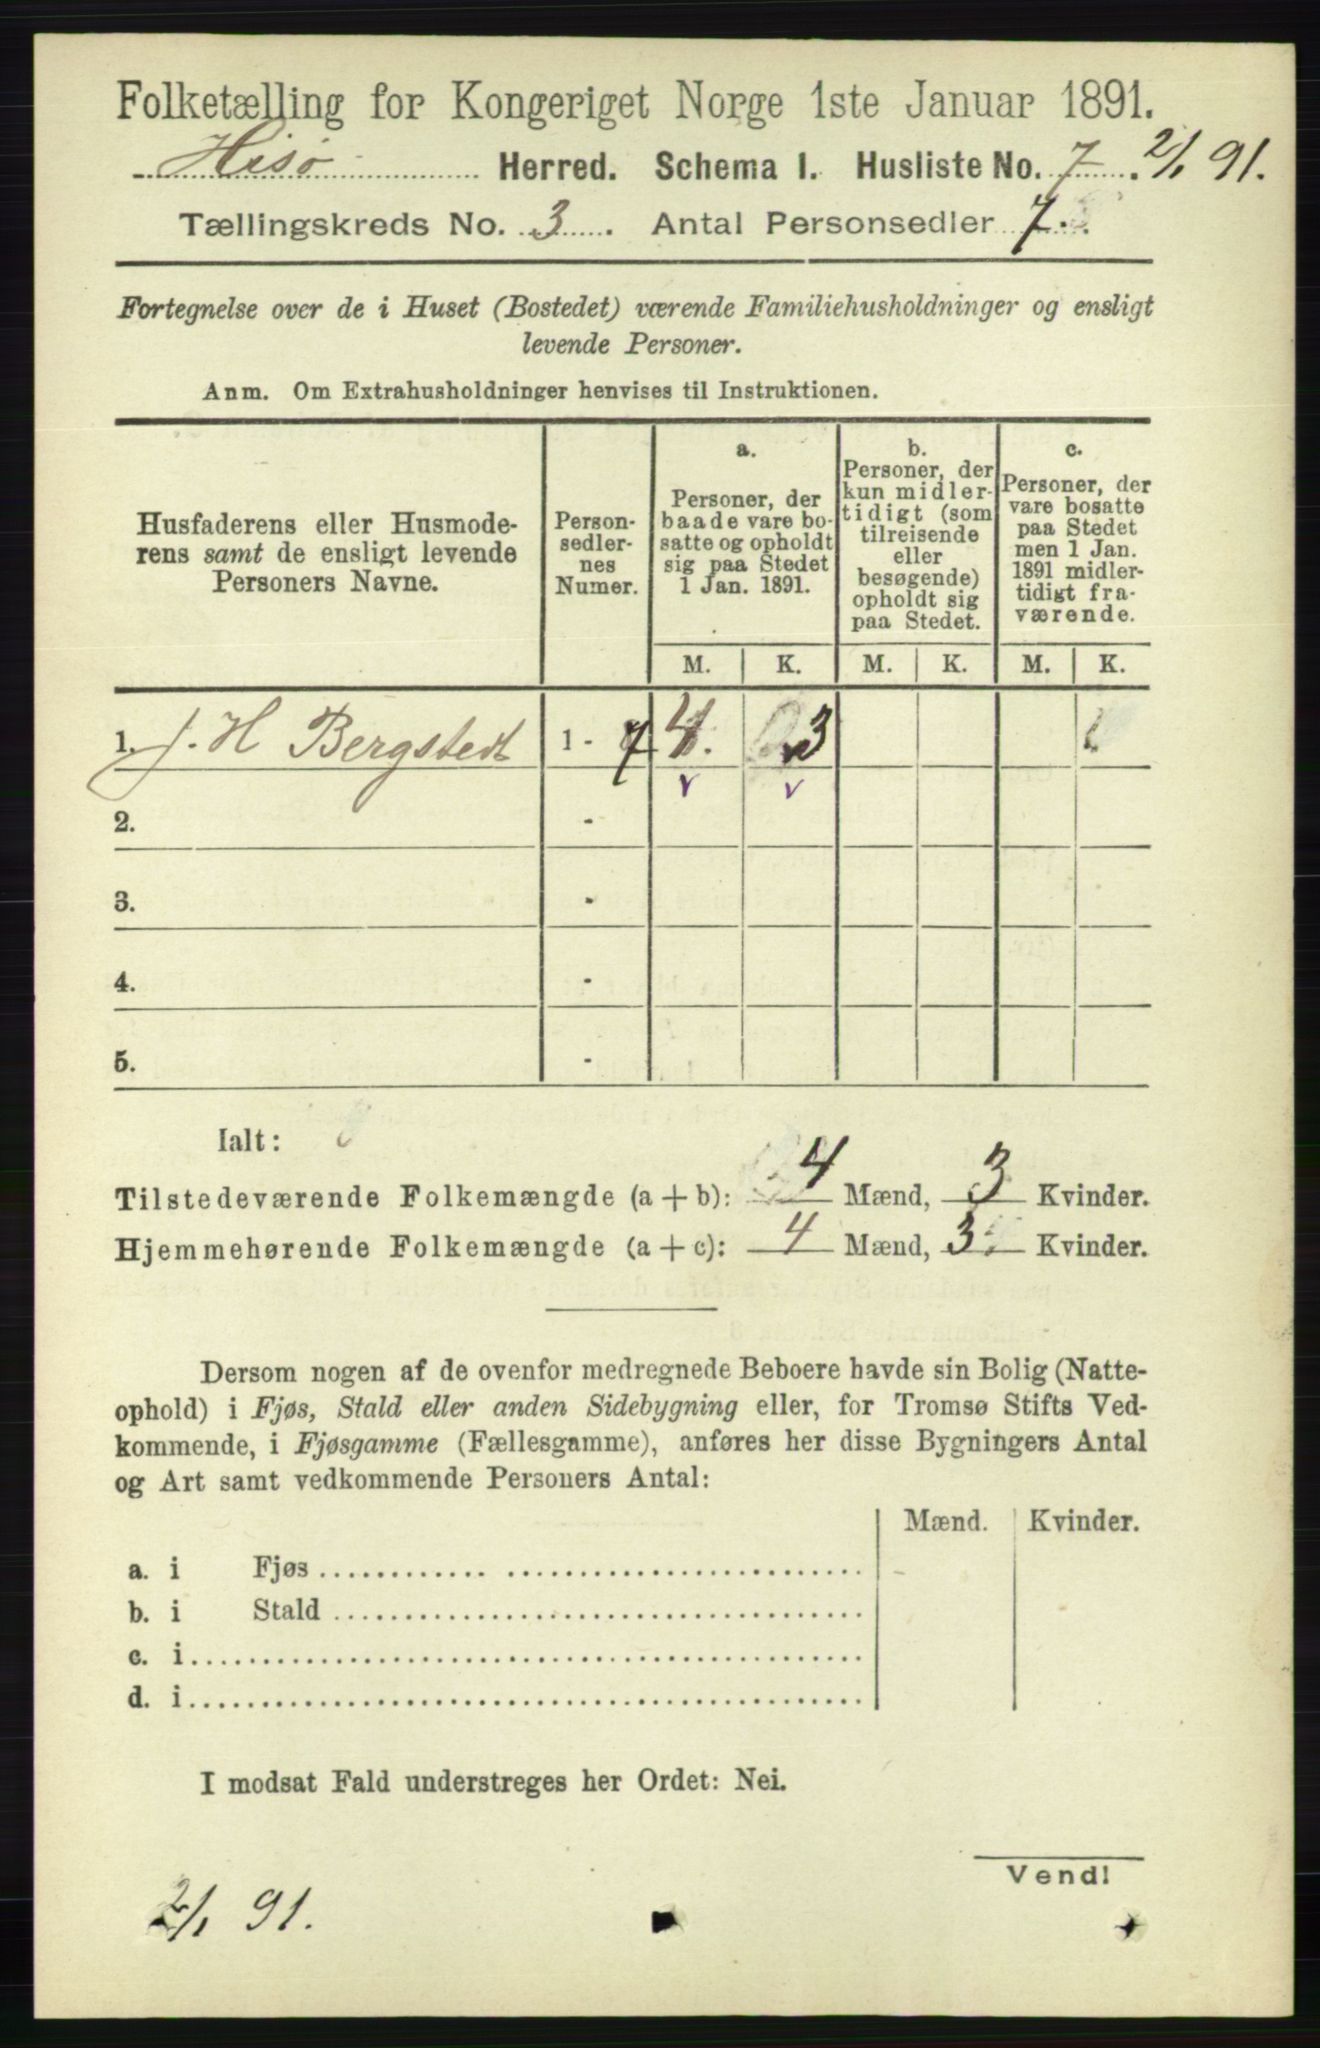 Folketælling for Kongeriget Norge 1ste Januar 1891.
Hisø Herred. Schema 1. Husliste No. 7. 2/1 91.
Tællingskreds No. 3. Antal Personsedler 7.
Fortegnelse over de i Huset (Bostedet) værende Familiehusholdninger og ensligt
levende Personer.
Anm. Om Extrahusholdninger henvises til Instruktionen.
Husfaderens eller Husmode-
rens samt de ensligt levende
Personers Navne.
Person-
sedler-
nes
Numer.
a.
Personer, der
baade vare bo-
satte og opholdt
sig paa Stedet
1 Jan. 1891.
b.
Personer, der
kun midler-
tidigt (som
tilreisende
eller
besøgende)
opholdt sig
paa Stedet.
c.
Personer, der
vare bosatte
paa Stedet
men 1 Jan.
1891 midler-
tidigt fra-
værende.
M. K. M. K. M. K.
1. J. H Bergstedt 1 - 7 4. 3
v v
2. -
3. -
4. -
5. -
Ialt:
Tilstedeværende Folkemængde (a + b): 4 Mænd, 3 Kvinder.
Hjemmehørende Folkemængde (a + c): 4 Mænd, 3 Kvinder.
Dersom nogen af de ovenfor medregnede Beboere havde sin Bolig (Natte-
ophold) i Fjøs, Stald eller anden Sidebygning eller, for Tromsø Stifts Ved-
kommende, i Fjøsgamme (Fællesgamme), anføres her disse Bygningers Antal
og Art samt vedkommende Personers Antal:
Mænd. Kvinder.
a. i Fjøs
b. i Stald
c. i
d. i
I modsat Fald understreges her Ordet: Nei.
Vend!
2/1 91.